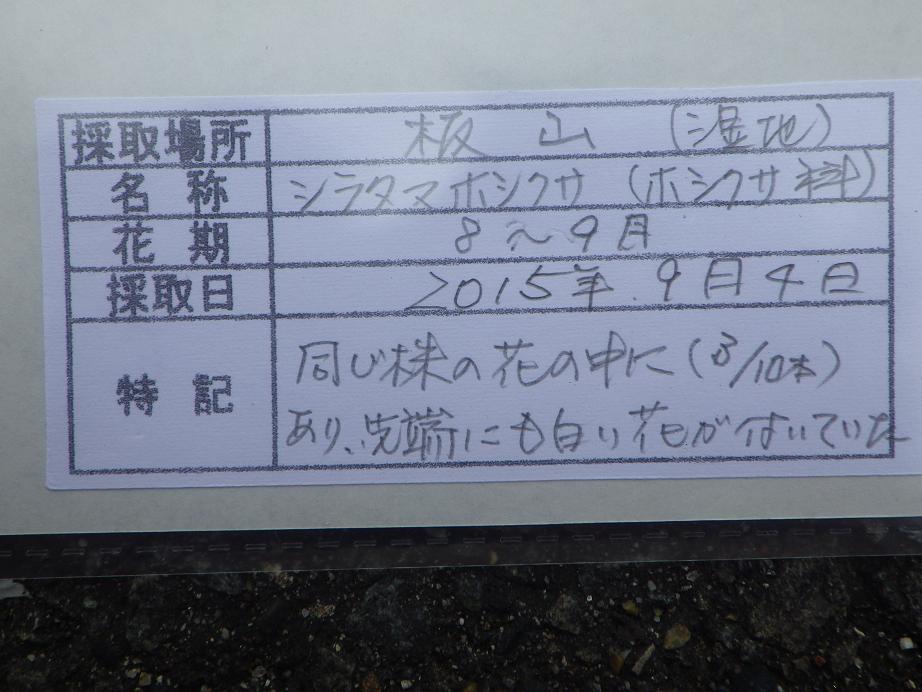 採取場所 板山 (湿地)
名称 シラタマホシクサ (ホシクサ科)
花期 8〜9月
採取日 2015年.9月4日
特記 同じ株の花の中に(3/10本)
あり、先端にも白い花が付いていた